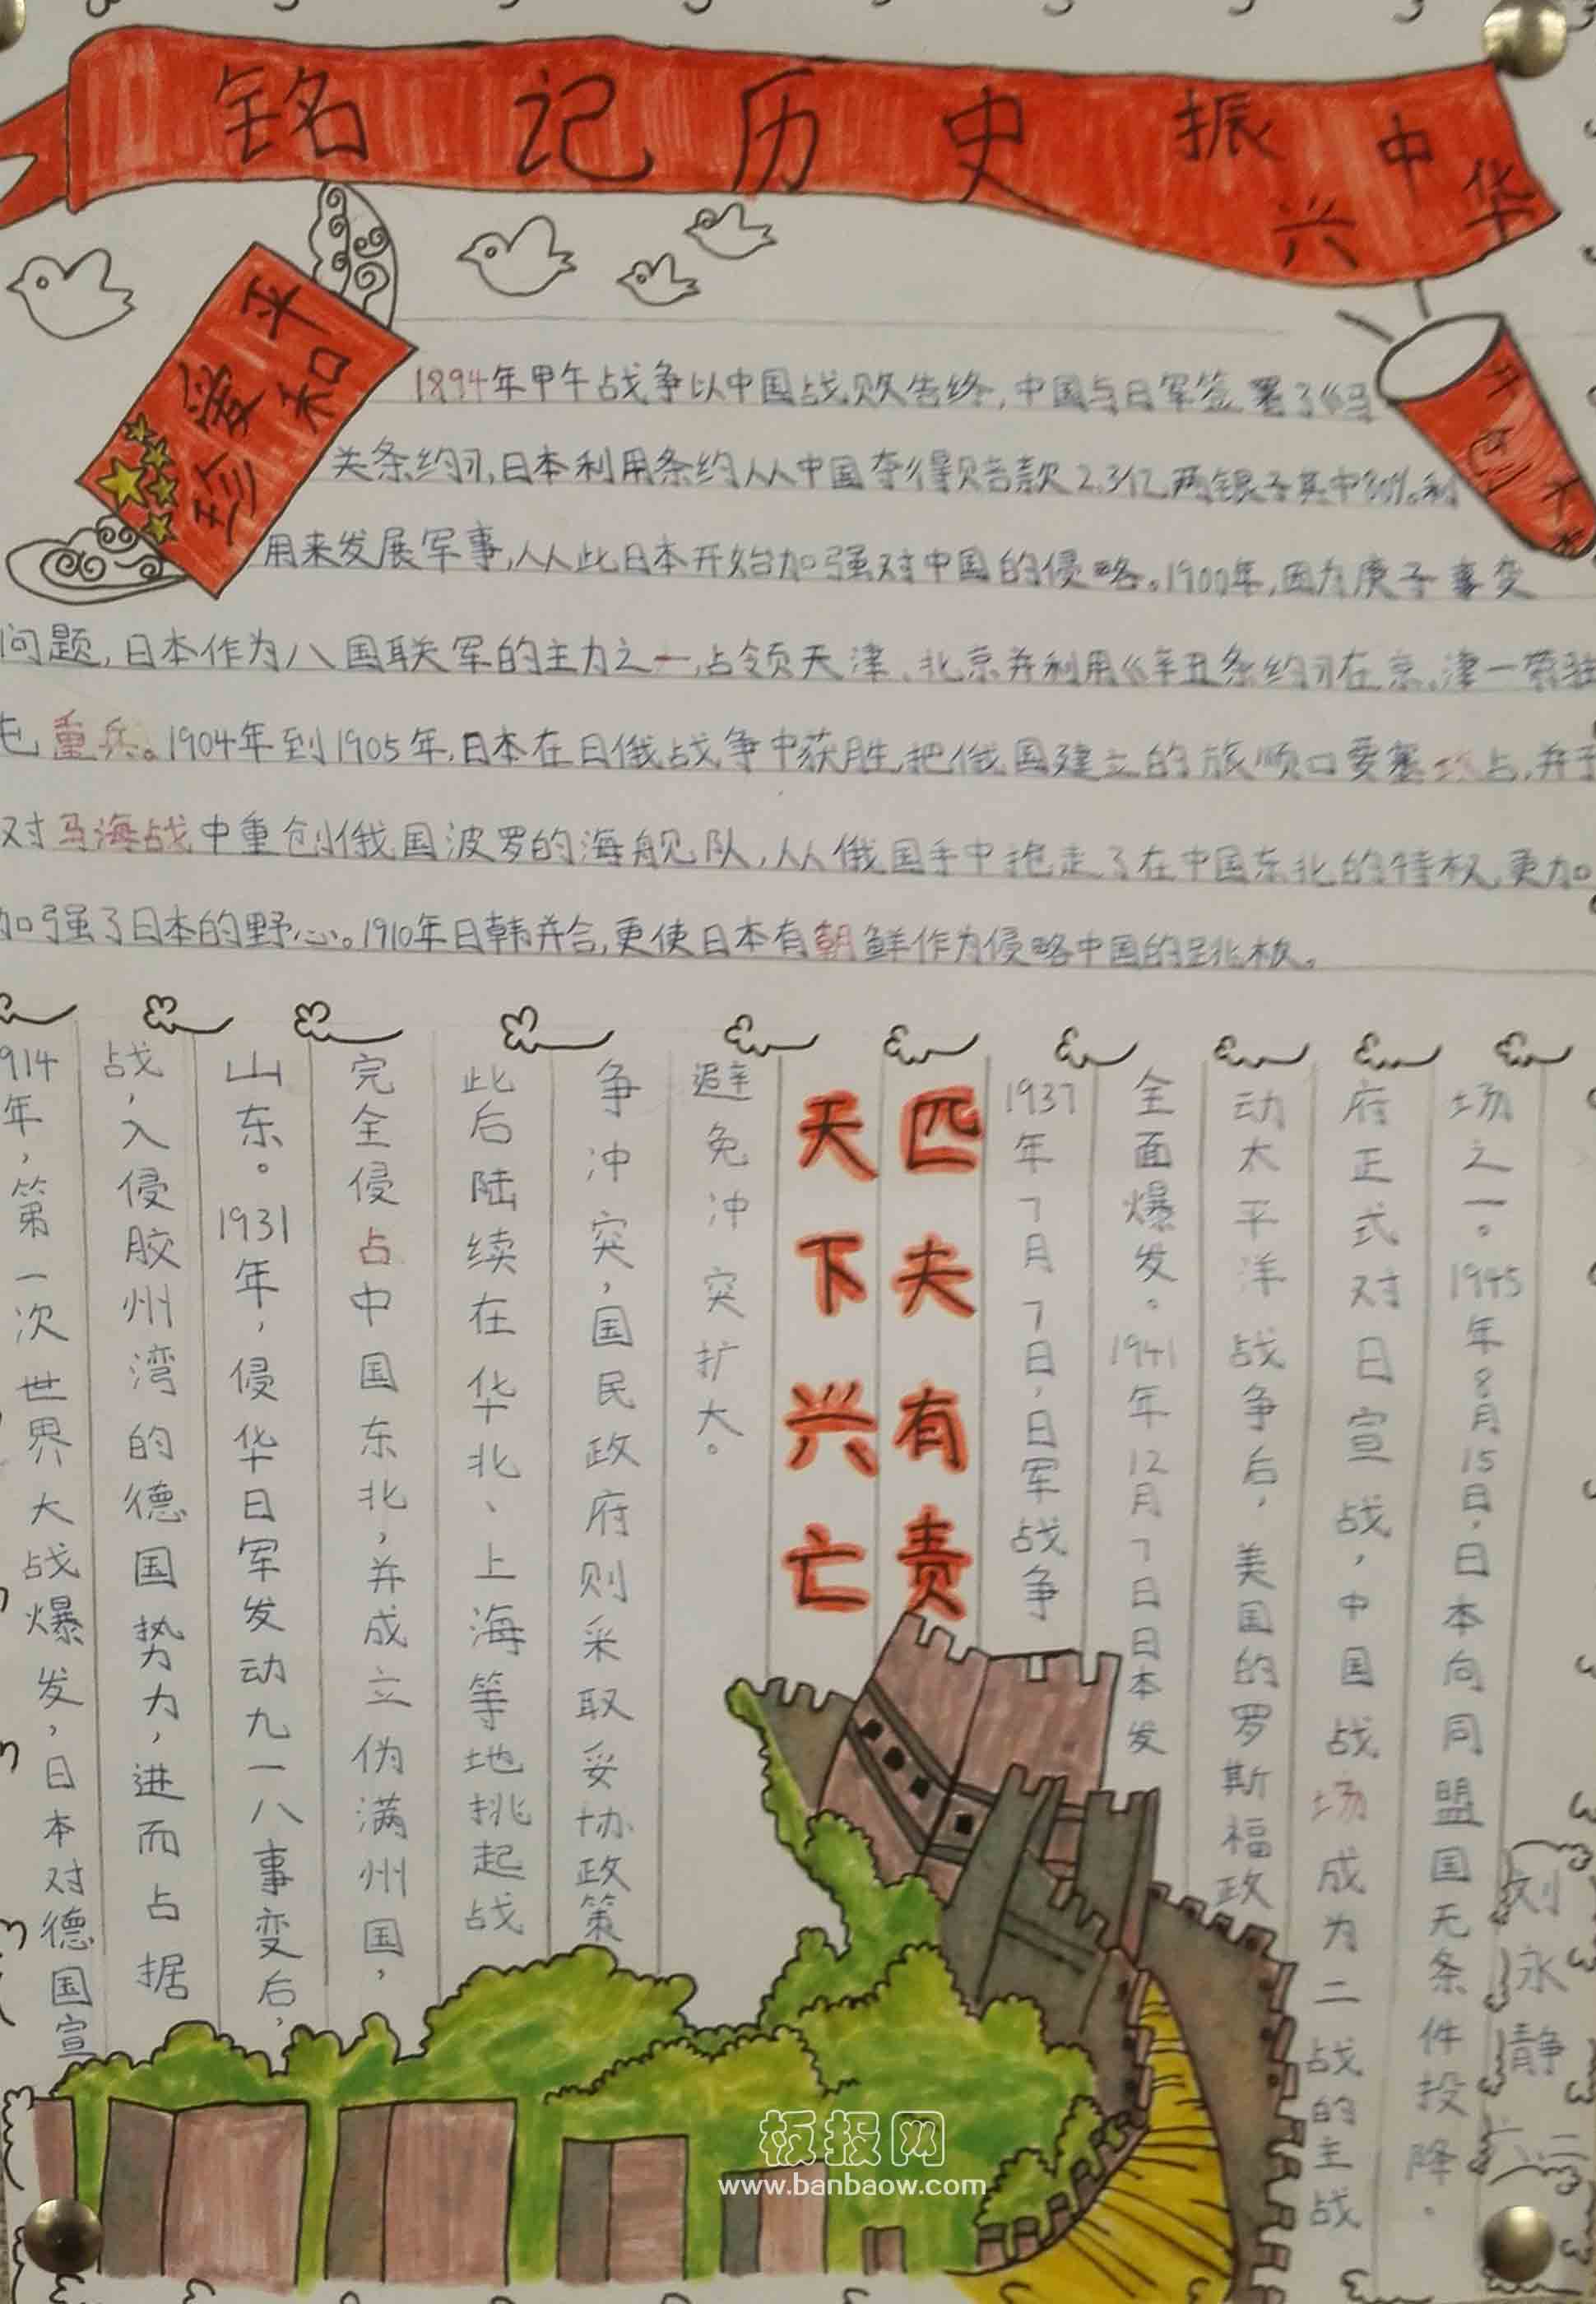 铭记历史振兴中华
珍爱
和平
1894年甲午战争以中国战败告终,中国与日军签署了《马
关条约》,日本利用条约从中国夺得赔款2.3亿两银子其中80%利
用来发展军事,从此日本开始加强对中国的侵略。1900年,因为庚子事变
问题,日本作为八国联军的主力之一,占领天津、北京并利用《辛丑条约》在京、津一带驻
屯重兵。1904年到1905年,日本在日俄战争中获胜,把俄国建立的旅顺口要塞攻占,并于
对马海战中重创俄国波罗的海舰队,从俄国手中抢走了在中国东北的特权,更加
加强了日本的野心。1910年日韩并合,更使日本有朝鲜作为侵略中国的跳板。
914年,第一次世界大战爆发,日本对德国宣
战,入侵胶州湾的德国势力,进而占据
山东。1931年,侵华日军发动九一八事变后,
完全侵占中国东北,并成立伪满州国,
此后陆续在华北、上海等地挑起战
争冲突,国民政府则采取妥协政策
避免冲突扩大。
天下兴亡
匹夫有责
1937年7月7日,日军战争
全面爆发。1941年12月7日日本发
动太平洋战争后,美国的罗斯福政
府正式对日宣战,中国战场成为二战的主战
场之一。1945年8月15日,日本向同盟国无条件投降.
刘永静
板报网
www.banbaow.com